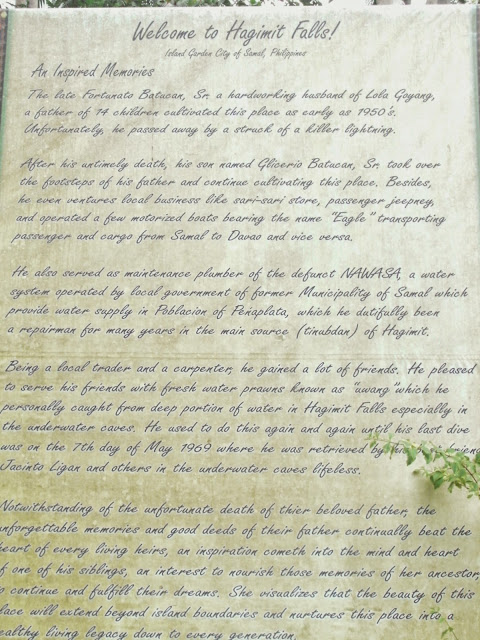 Welcome to Hagimit Falls!
Island Garden City of Samal, Philippines
An Inspired Memories
The late Fortunato Batucan, Sr. a hardworking husband of Lola Goyang,
a father of 14 children cultivated this place as early as 1950's.
Unfortunately, he passed away by a struck of a killer lightning.
After his untimely death, his son named Glicerio Batucan, Sr. took over
the footsteps of his father and continue cultivating this place. Besides,
he even ventures local business like sari-sari store, passenger jeepney,
and operated a few motorized boats bearing the name "Eagle" transporting
passenger and cargo from Samal to Davao and vice versa.
He also served as maintenance plumber of the defunct NAWASA, a water
system operated by local government of former Municipality of Samal which
provide water supply in Poblacion of Peñaplata, which he dutifully been
a repairman for many years in the main source (tinubdan) of Hagimit.
Being a local trader and a carpenter, he gained a lot of friends. He pleased
to serve his friends with fresh water prawns known as "uwang" which he
personally caught from deep portion of water in Hagimit Falls especially in
the underwater caves. He used to do this again and again until his last dive
was on the 7th day of May 1969 where he was retrieved by
Jacinto Ligan and others in the underwater caves lifeless.
Notwithstanding of the unfortunate death of thier beloved father, the
unforgettable memories and good deeds of their father continually beat the
heart of every living heirs, an inspiration cometh into the mind and heart
of one of his siblings, an interest to nourish those memories of her ancestor,
to continue and fulfill their dreams. She visualizes that the beauty of this
place will extend beyond island boundaries and nurtures this place into a
healthy living legacy down to every generation.